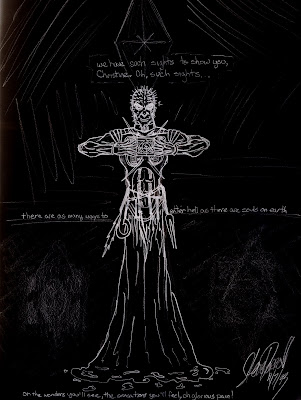 we have such sights to show you,
Christine. Oh, such sights...
there are as many ways to enter hell as there are souls on earth
Oh the wonders you'll see, the sensations you'll feel, oh glorious pain!